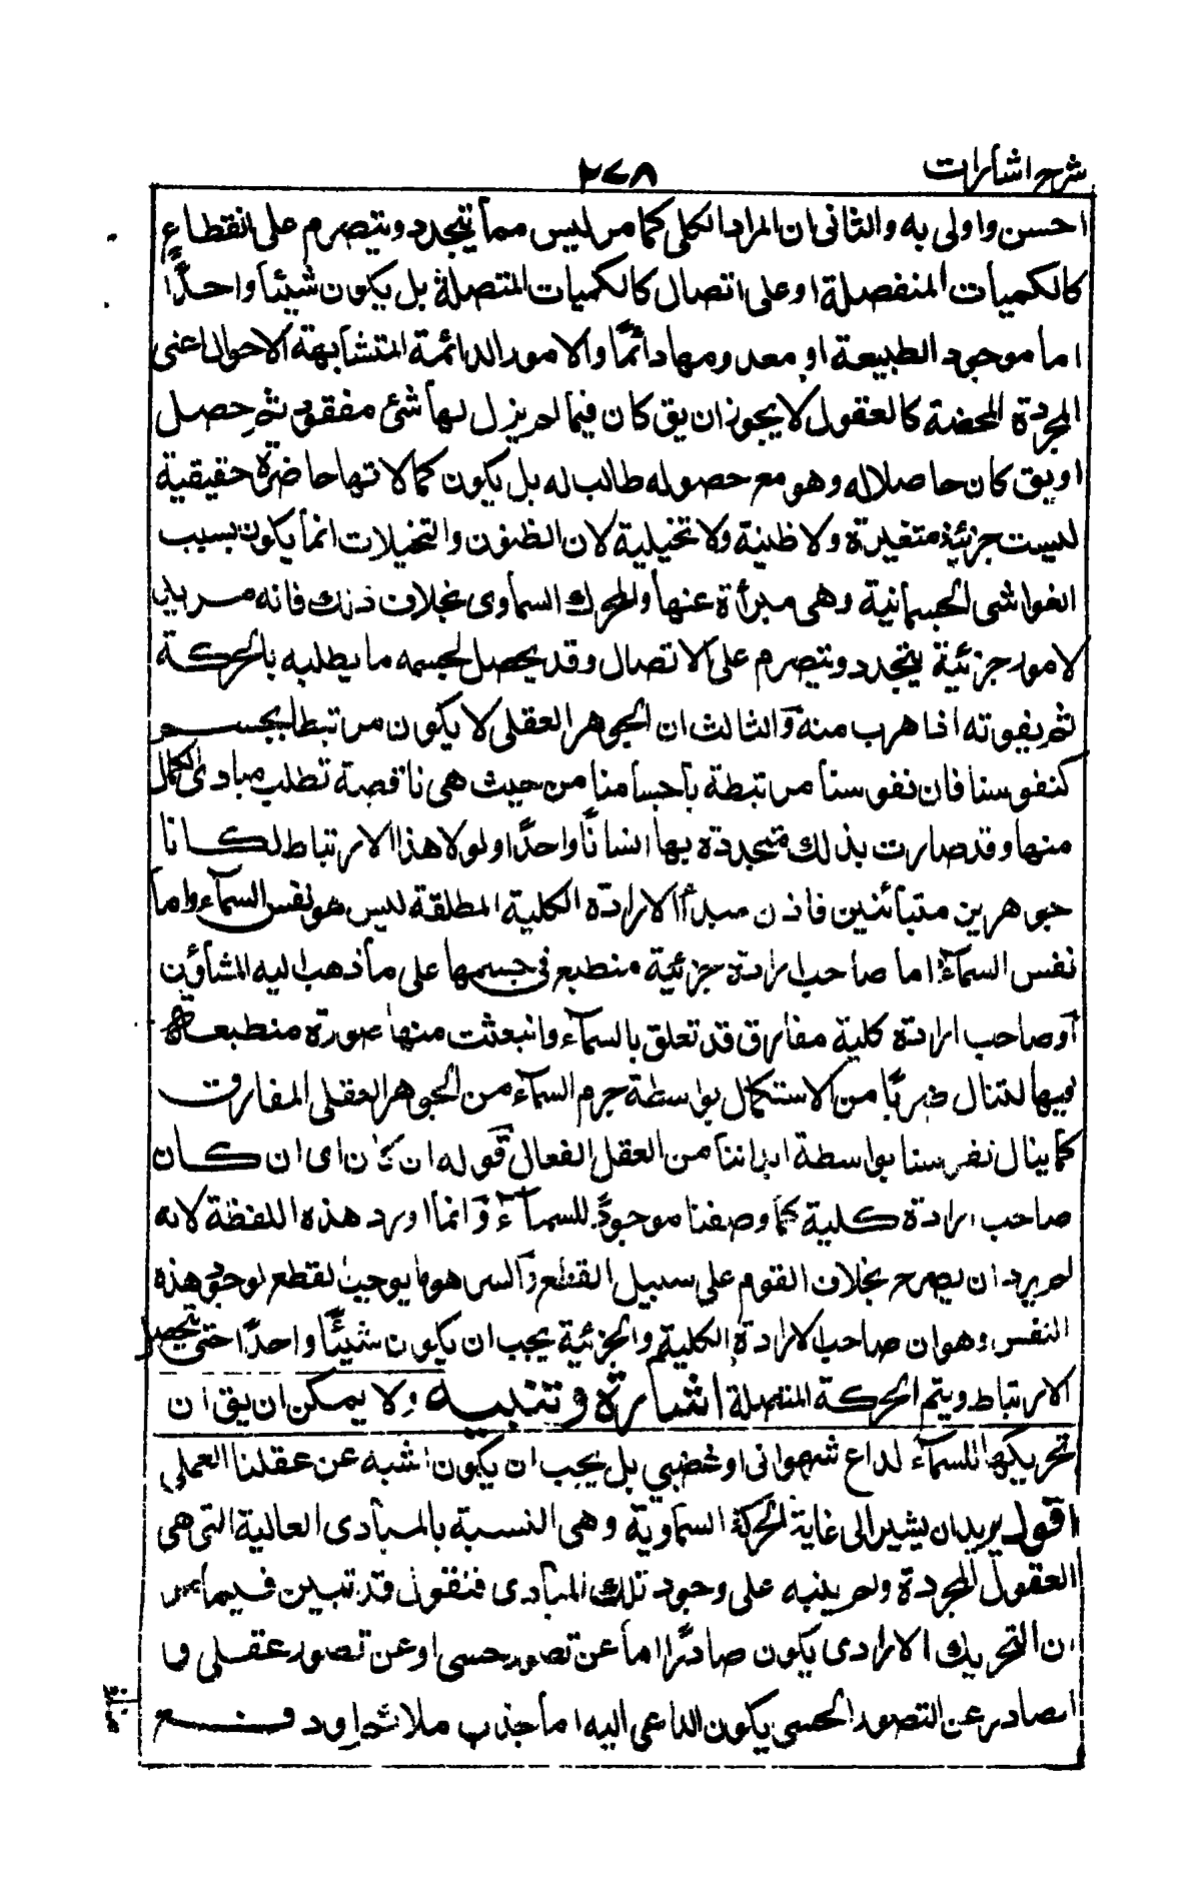 شرح اشارات
۲۷۸
احسن واولى به والثانى ان المراد الكلى كما مر ليس مما يتجدد ويتصرم على انقطاع
كالكميات المنفصلة او على اتصال كالكميات المتصلة بل يكون شيئا واحدًا
اما موجود الطبيعة او معدومها دائمًا والامور الدائمة المتشابهة الاحوال اعنى
المجردة المحضة كالعقول لا يجوز ان يق كان فيما لم يزل لها شئ مفقود ثم حصل
او يق كان حاصلا له وهو مع حصوله طالب له بل يكون كمالاتها حاضرة حقيقية
ليست جزئية متغيرة ولا ظنية ولا تخيلية لان الظنون والتخيلات انما يكون بسبب
الغواشى الجسمانية وهى مبرأة عنها والمحرك السماوى بخلاف ذلك فانه مريد
لامور جزئية يتجدد ويتصرم على الاتصال وقد يحصل لجسمه ما يطلبه بالحركة
ثم يفوته اذا هرب منه والثالث ان الجوهر العقلى لا يكون مرتبطا بجسم
كنفوسنا فان نفوسنا مرتبطة باجسامنا من حيث هى ناقصة تطلب مبادى الكمال
منها وقد صارت بذلك متجددة بها انسانًا واحدًا ولولا هذا الارتباط لكانا
جوهرين متبائنين فاذن مبدأ الارادة الكلية المطلقة ليس هو نفس السماء واما
نفس السماء اما صاحب ارادة جزئية منطبع فى جسمها على ما ذهب اليه المشاؤن
او صاحب ارادة كلية مفارق قد تعلق بالسماء وانبعثت منها صورة منطبعة
فيها لتنال ضربًا من الاستكمال بواسطة جرم السماء من الجوهر العقلى المفارق
كما ينال نفوسنا بواسطة ابداننا من العقل الفعال قوله ان كان اى ان كان
صاحب ارادة كلية كما وصفنا موجودًا للسماء وانما اورد هذه اللفظة لانه
لم يرد ان يصرح بخلاف القوم على سبيل القطع والسر هو ما يوجب القطع لوجود هذه
النفس وهو ان صاحب الارادة الكلية والجزئية يجب ان يكون شيئًا واحدًا حتى يتحصل
الارتباط ويتم الحركة المتصلة اشارة وتنبيه ولا يمكن ان يق ان
تحريكها للسماء لداع شهوانى او غضبي بل يجب ان يكون اشبه عن عقلنا العملي
اقول يريد ان يشير الى غاية الحركة السماوية وهى النسبة بالمبادى العالية التى هى
العقول المجردة ولم ينبه على وجود تلك المبادى فنقول قد تبين فيما مر
ان التحريك الارادى يكون صادرًا اما عن تصور حسى او عن تصور عقلى و
الصادر عن التصور الحسى يكون الداعى اليه اما جذب ملائم او دفع